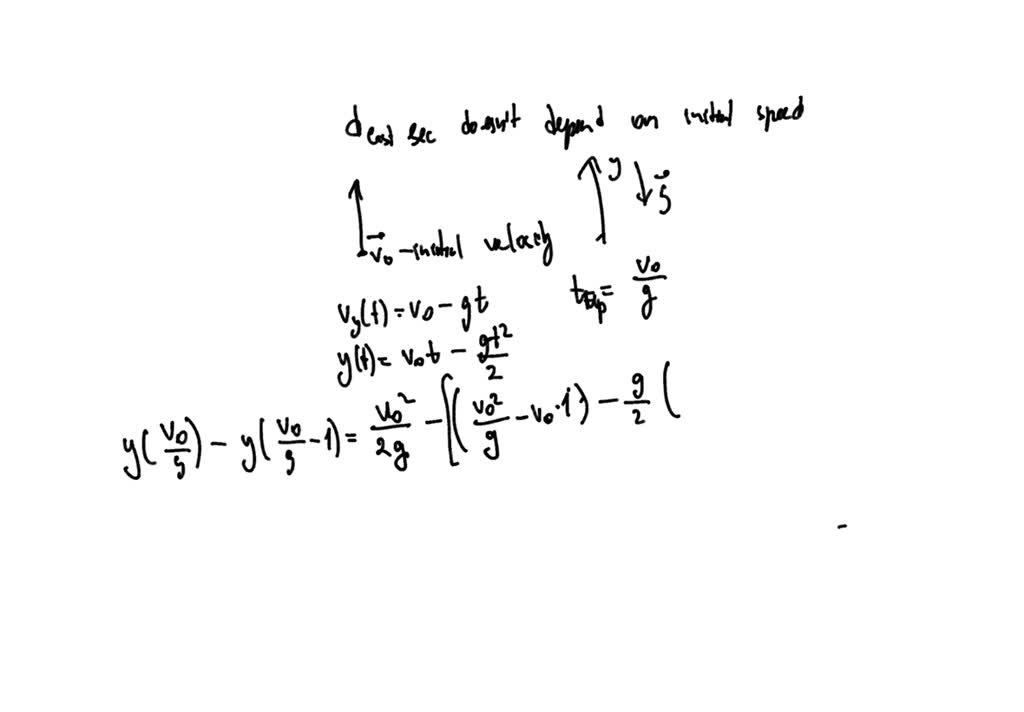 d last sec doesn't depend on initial speed
y g
v0 – initial velocity
t up = v0/g
vy(t) = v0 – gt
y(t) = v0t – gt²/2
y(v0/g) – y(v0/g – 1) = v0²/2g – [(v0²/g – v0·1) – g/2 (